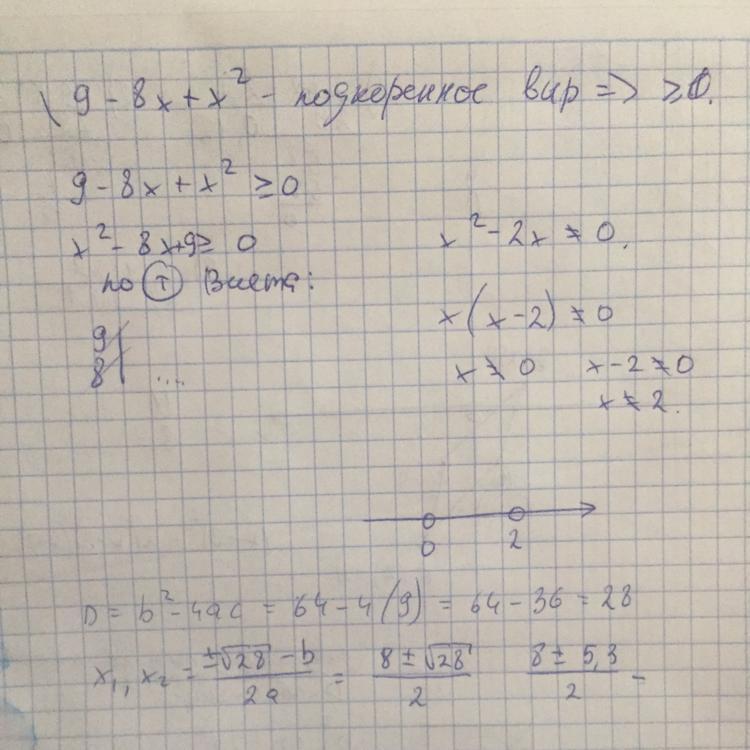 \ 9 - 8x + x² - подкоренное выр => ≥0.
9 - 8x + x² ≥ 0
x² - 8x+9 ≥ 0
по Т Виета:
9
8 ...
x² - 2x ≠ 0.
x(x-2) ≠ 0
x ≠ 0 x-2 ≠ 0
x ≠ 2.
0 2
D = b² - 4ac = 64 - 4(9) = 64 - 36 = 28
x₁, x₂ = (±√28 - b)/2a = (8 ± √28)/2 (8 ± 5,3)/2 =